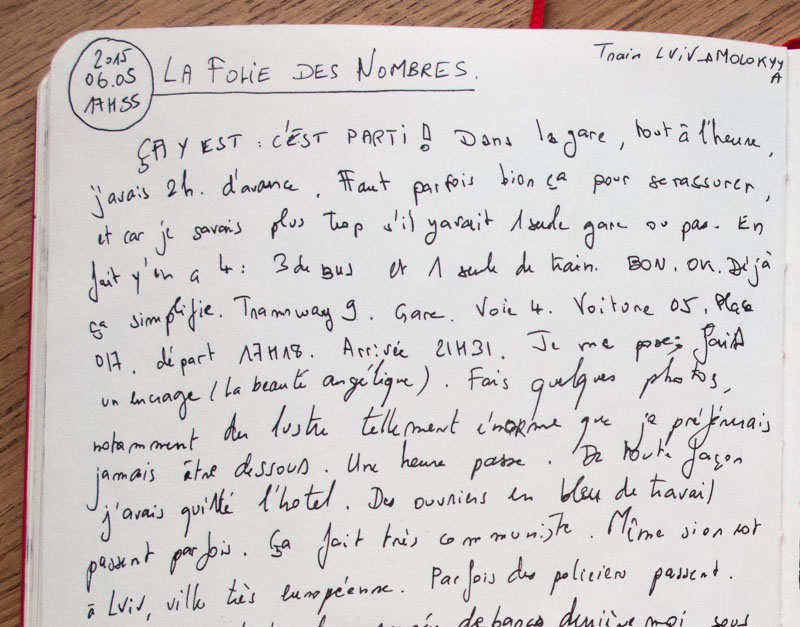 2015
06.05
17H55
LA FOLIE DES NOMBRES.
Train LVIV → MOLOKYY
A
ÇA Y EST : C'EST PARTI ! Dans la gare, tout à l'heure,
j'avais 2h. d'avance. Faut parfois bien ça pour se rassurer,
et car je savais plus trop s'il y avait 1 seule gare ou pas. En
fait y'en a 4 : 3 de BUS et 1 seule de train. BON. OK. Déjà
ça simplifie. Tramway 9. Gare. Voie 4. Voiture 05, Place
017. départ 17H18. Arrivée 21H31. Je me pose, fais
un encrage (La beauté angélique). Fais quelques photos,
notamment du lustre tellement énorme que je préférerais
jamais être dessous. Une heure passe. De toute façon
j'avais quitté l'hotel. Des ouvriers en bleu de travail
passent parfois. Ça fait très communiste. Même si on est
à Lviv, ville très européenne. Parfois des policiers passent.
de bancs derrière moi sous